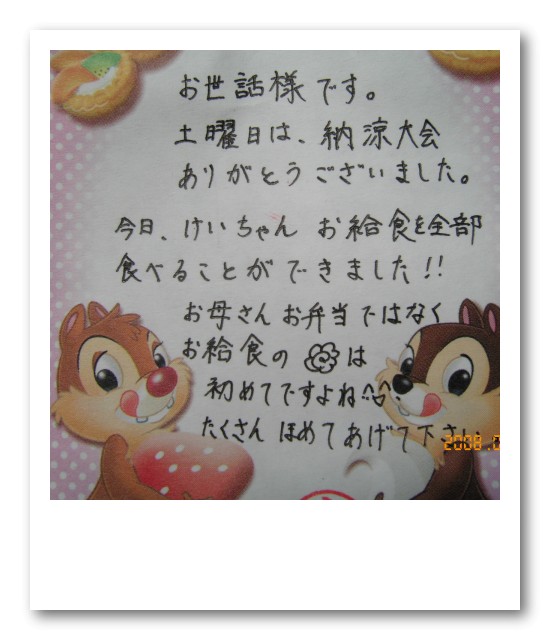 お世話様です。
土曜日は、納涼大会
ありがとうございました。
今日、けいちゃん お給食を全部
食べることができました!!
お母さんお弁当ではなく
お給食の は
初めてですよね^^。
たくさん ほめてあげて下さい
2008.0